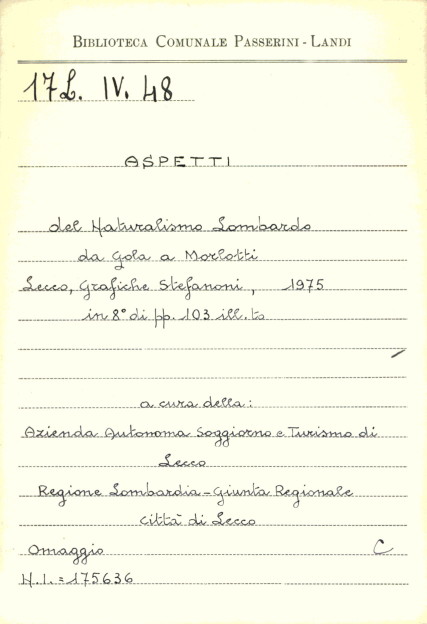 BIBLIOTECA COMUNALE PASSERINI - LANDI
17L. IV. 48
ASPETTI
del Naturalismo Lombardo
da Gola a Morlotti
Lecco, Grafiche Stefanoni, 1975
in 8° di pp. 103 ill.to
a cura della:
Azienda Autonoma Soggiorno e Turismo di
Lecco
Regione Lombardia - Giunta Regionale
Città di Lecco
Omaggio C
N.I. = 175636